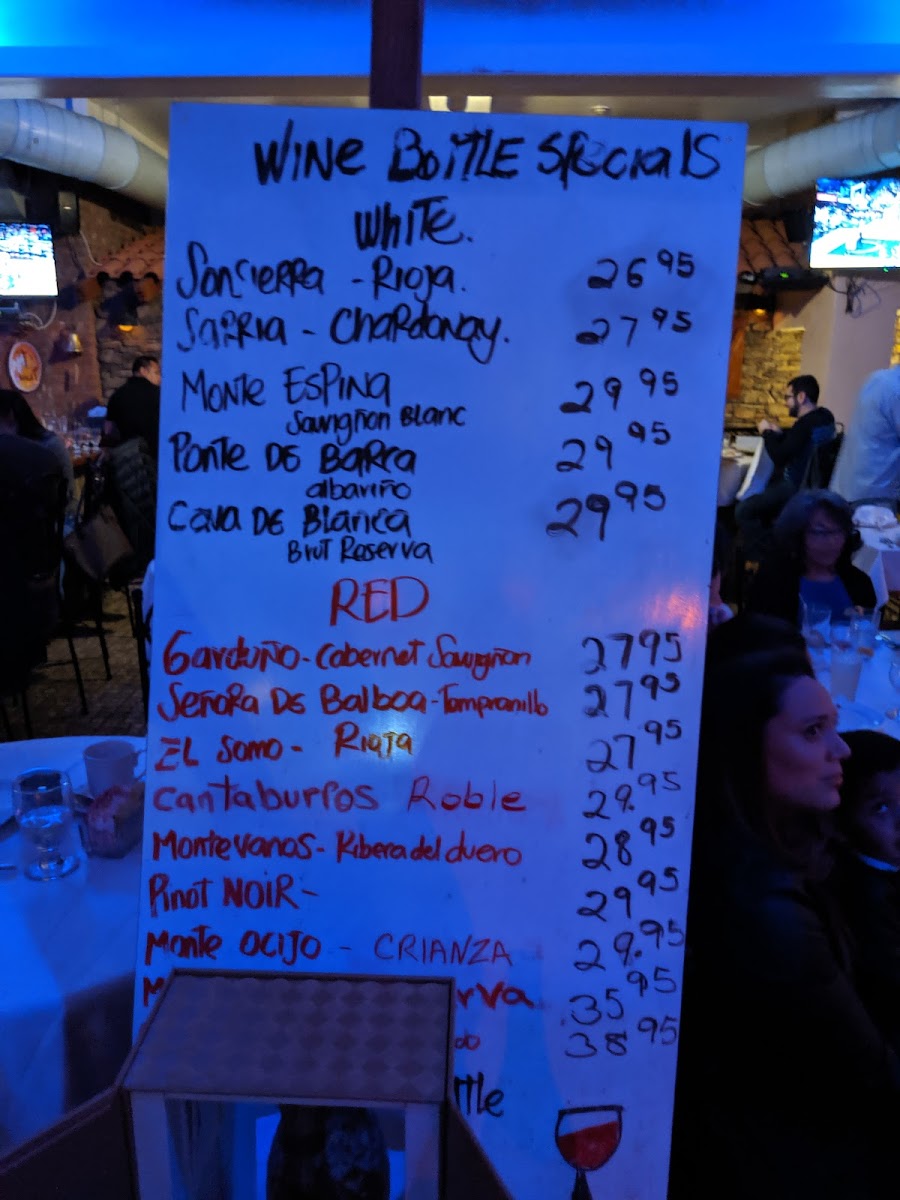 WINE BOTTLE SPECIALS
WHITE.
Sonsierra - Rioja. 26 95
Sarria - Chardonay. 27 95
MONTE ESPINA 29 95
Sauvigñon Blanc
Ponte DE Barra 29 95
albariño
Cava DE Blanca 29 95
Brut Reserva
RED
Garduño - Cabernet Sauvigñon 27 95
SEÑORA DE Balboa - Tampranillo 27 95
EL Somo - Rioja 27 95
Cantaburros Roble 29.95
Montevanos - Ribera del duero 28 95
Pinot NOIR - 29 95
Monte OCIJO - CRIANZA 29.95
rva 35 95
do 38 95
ttle